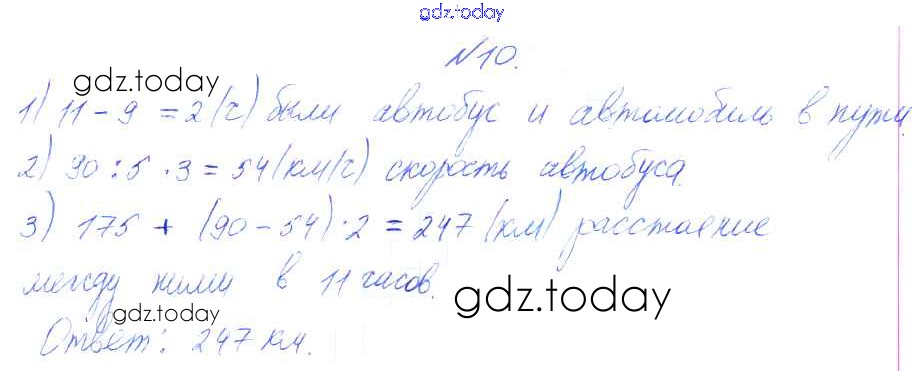 gdz.today
№10.
gdz.today
1) 11 - 9 = 2 (ч) были автобус и автомобиль в пути.
2) 90 : 5 · 3 = 54 (км/ч) скорость автобуса.
3) 175 + (90 - 54) · 2 = 247 (км) расстояние
между ними в 11 часов.
gdz.today
gdz.today
Ответ: 247 км.